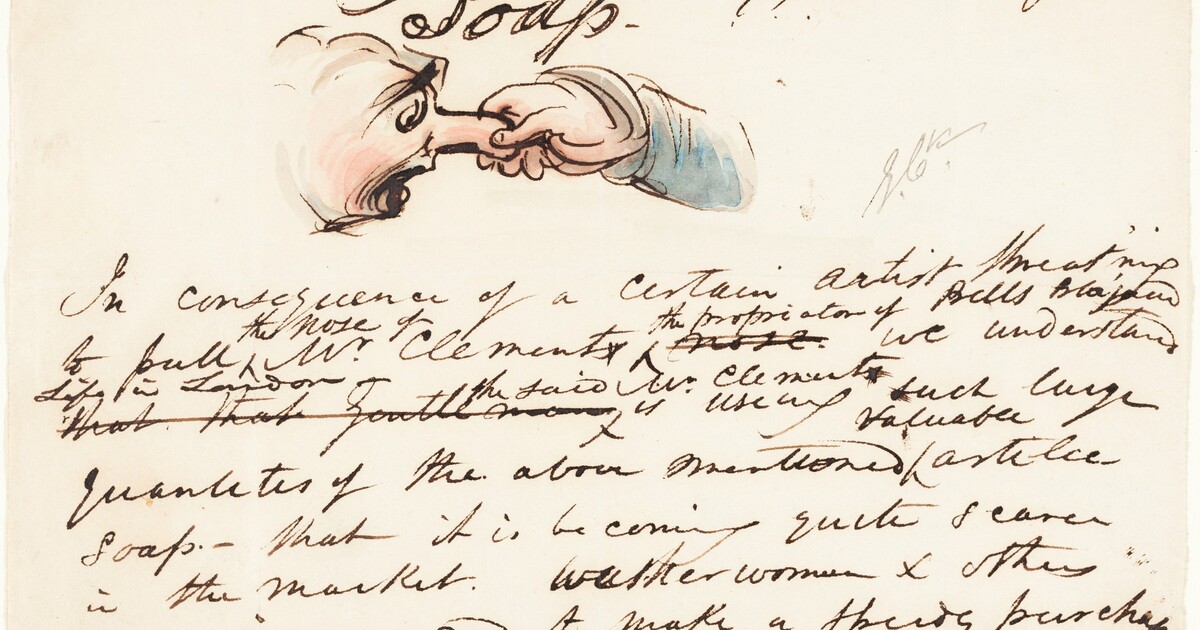 Soap -
G. Ck
In consequence of a certain artist threat'ning
the nose of the proprietor of Bells
to pull Mr. Clements nose. we understand
Life in London - the said Mr. Clements such large
that that Gentleman is using valuable
quantites of the above mentioned article
Soap. - that it is becoming quite scarce
in the market. Washerwomen & others
to make a speedy purchase